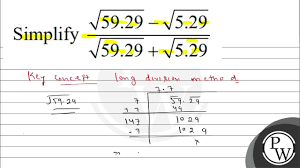 Simplify (√59.29 − √5.29) / (√59.29 + √5.29)
Key concept long division method
7.7
√59.29 7 √59.29
7 7 49
147 1029
7 1029
x
P
W